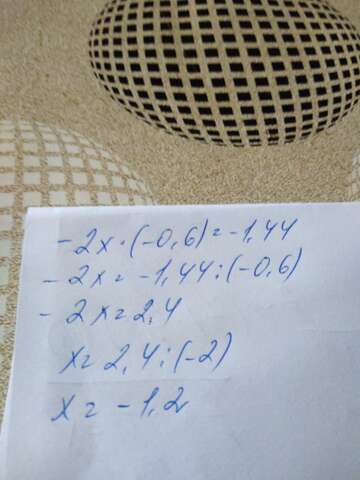 -2x·(-0,6)=-1,44
-2x=-1,44:(-0,6)
-2x=2,4
x=2,4:(-2)
x=-1,2